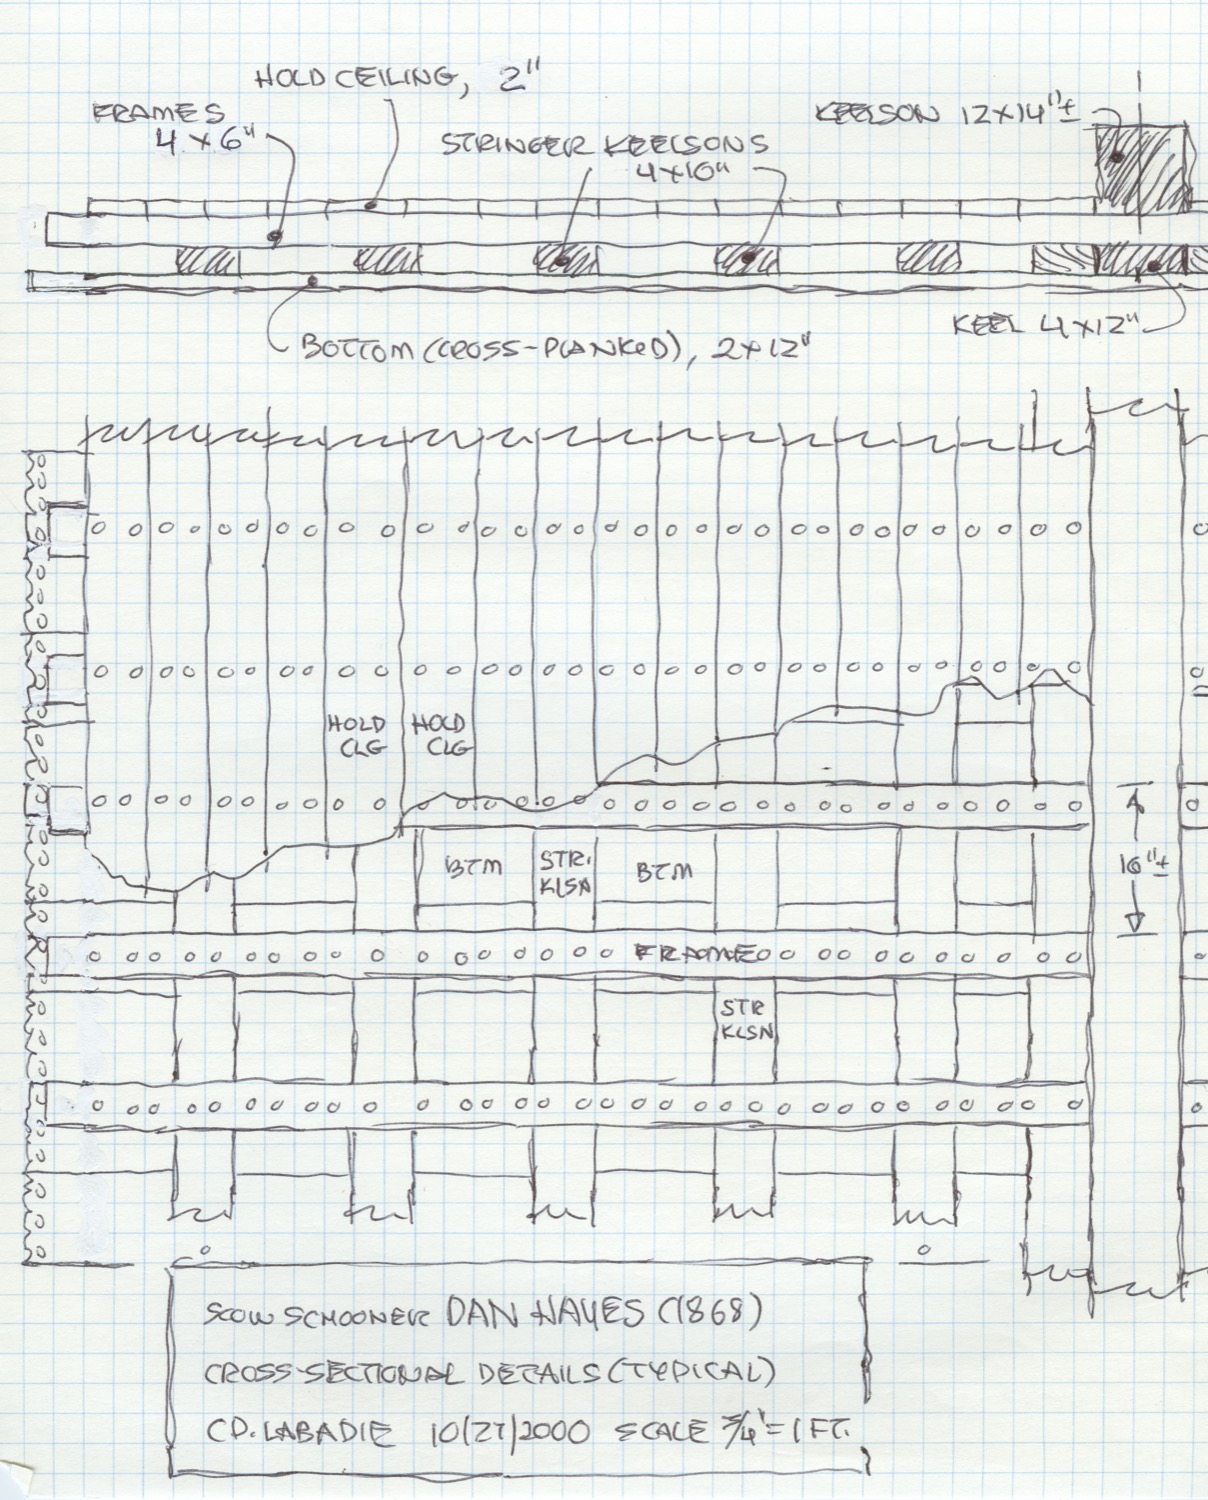 HOLD CEILING, 2"
FRAMES
4 x 6"
KEELSON 12x14"±
STRINGER KEELSONS
4x10"
KEEL 4x12"
BOTTOM (CROSS-PLANKED), 2x12"
HOLD
CLG
HOLD
CLG
BTM
STR.
KLSN
BTM
16"±
FRAME
STR
KLSN
SCOW SCHOONER DAN HAYES (1868)
CROSS-SECTIONAL DETAILS (TYPICAL)
C.P. LABADIE 10/27/2000 SCALE 3/4" = 1 FT.